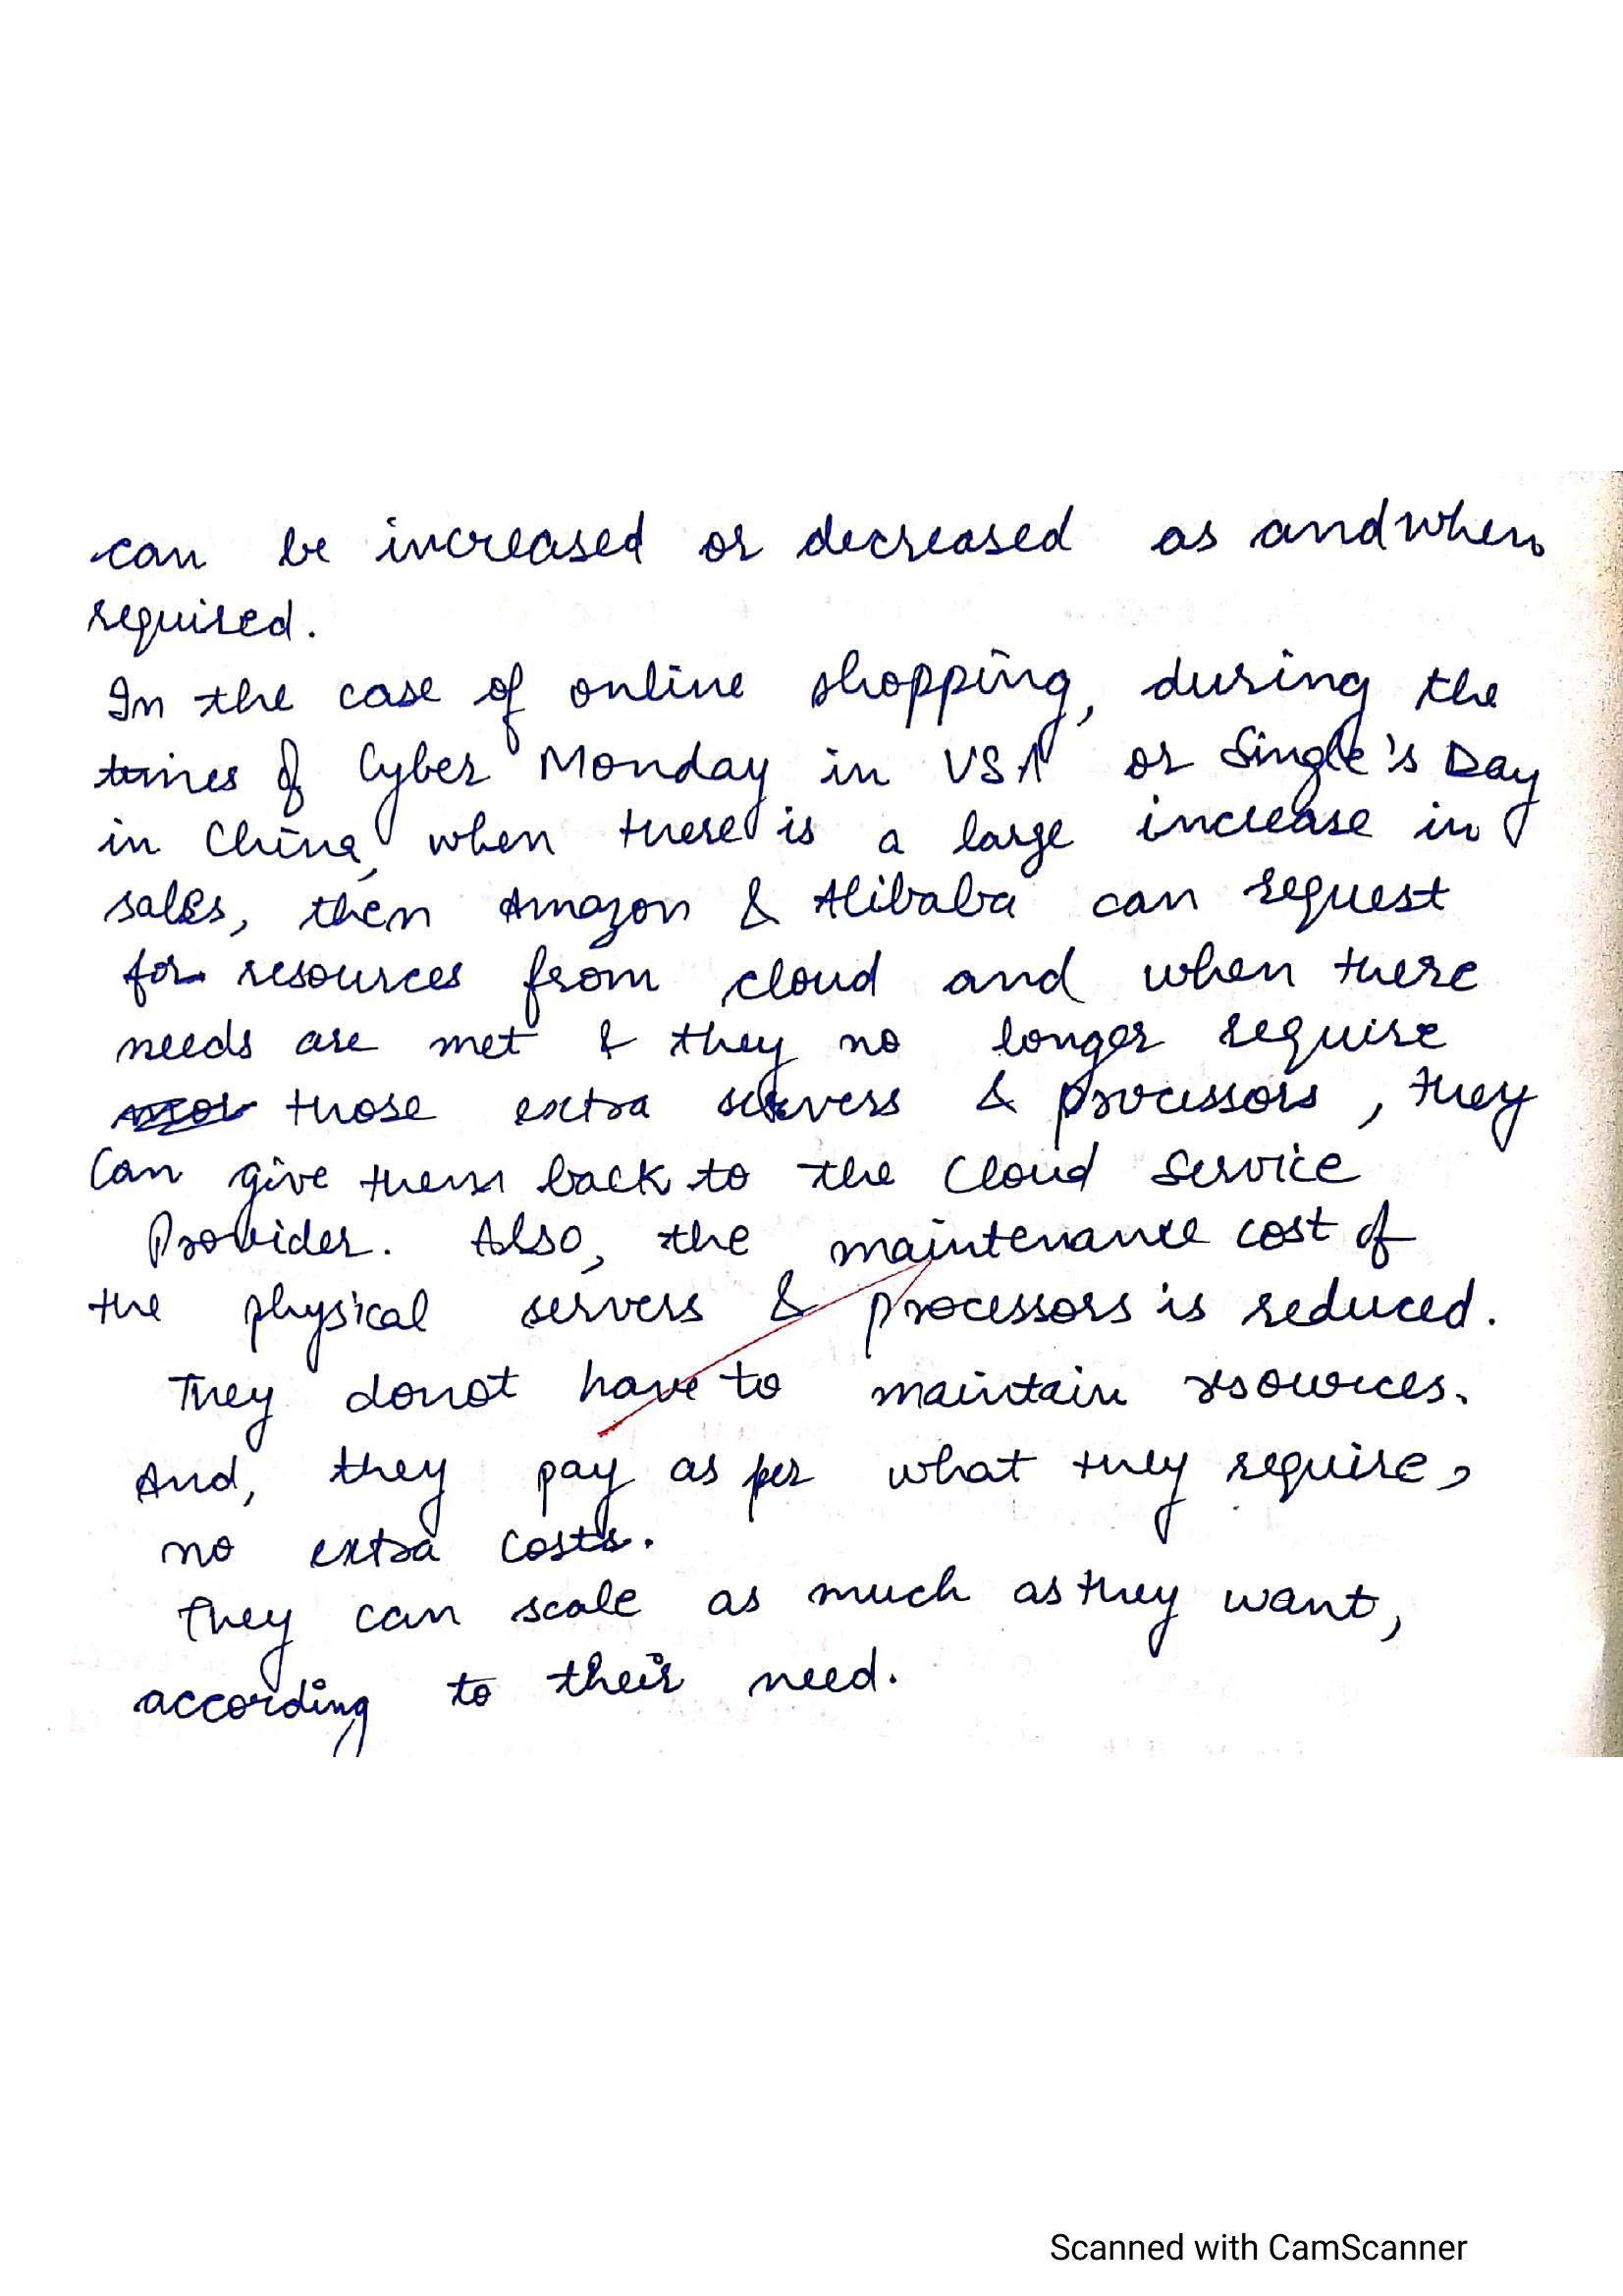 can be increased or decreased as and when
required.
In the case of online shopping, during the
times of Cyber Monday in USA or Single's Day
in China, when there is a large increase in
sales, then Amazon & Alibaba can request
for resources from cloud and when there
needs are met & they no longer require
those extra servers & processors, they
Can give them back to the Cloud Service
Provider. Also, the maintenance cost of
the physical servers & processors is reduced.
They donot have to maintain resources.
And, they pay as per what they require,
no extra costs.
They can scale as much as they want,
according to their need.
Scanned with CamScanner